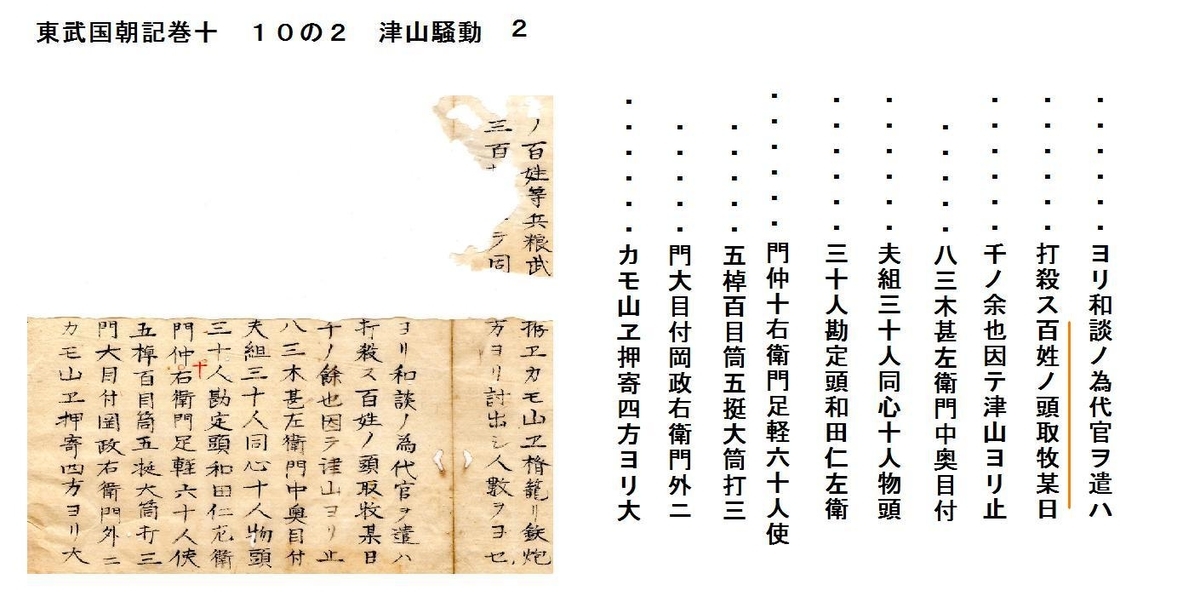 東武国朝記巻十　１０の２　津山騒動　２
ノ百姓等兵粮武
三百
ラ同
ヱカモ山ヱ楯籠リ鉄炮
方ヨリ討出シ人数ヲヨセ
ヨリ和談ノ為代官ヲ遣ハ
打殺ス百姓ノ頭取牧某日
千ノ餘也因テ津山ヨリ止
八三木甚左衛門中奥目付
夫組三十人同心十人物頭
三十人勘定頭和田仁左衛
門仲十右衛門足軽六十人使
五棹百目筒五挺大筒打三
門大目付岡政右衛門外ニ
カモ山ヱ押寄四方ヨリ大
・・・・・・ヨリ和談ノ為代官ヲ遣ハ
・・・・・・打殺ス百姓ノ頭取牧某日
・・・・・・千ノ余也因テ津山ヨリ止
・・・・・八三木甚左衛門中奥目付
・・・・・・夫組三十人同心十人物頭
・・・・・・三十人勘定頭和田仁左衛
・・・・・・門仲十右衛門足軽六十人使
・・・・・五棹百目筒五挺大筒打三
・・・・・門大目付岡政右衛門外ニ
・・・・・・カモ山ヱ押寄四方ヨリ大